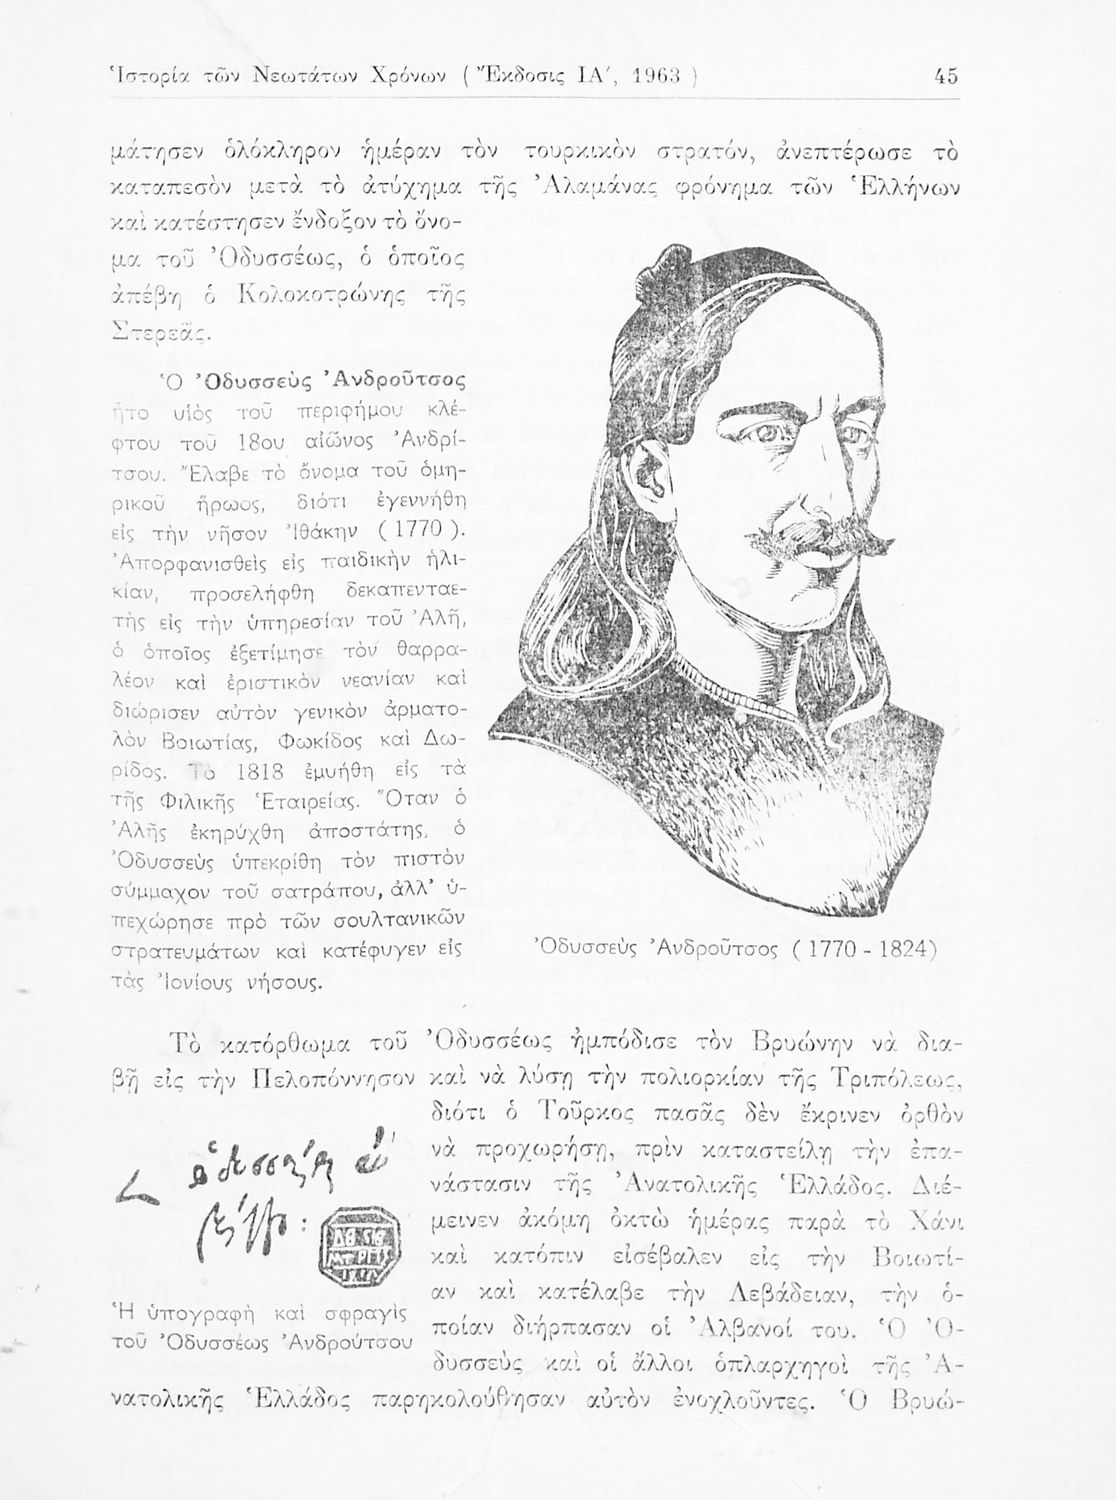 Ἱστορία τῶν Νεωτάτων Χρόνων ( Ἔκδοσις ΙΑ΄, 1963 ) 45
μάτησεν ὁλόκληρον ἡμέραν τὸν τουρκικὸν στρατόν, ἀνεπτέρωσε τὸ
καταπεσὸν μετὰ τὸ ἀτύχημα τῆς Ἀλαμάνας φρόνημα τῶν Ἑλλήνων
καὶ κατέστησεν ἔνδοξον τὸ ὄνο-
μα τοῦ Ὀδυσσέως, ὁ ὁποῖος
ἀπέβη ὁ Κολοκοτρώνης τῆς
Στερεᾶς.
Ὁ Ὀδυσσεὺς Ἀνδροῦτσος
ἦτο υἱὸς τοῦ περιφήμου κλέ-
φτου τοῦ 18ου αἰῶνος Ἀνδρί-
τσου. Ἔλαβε τὸ ὄνομα τοῦ ὁμη-
ρικοῦ ἥρωος, διότι ἐγεννήθη
εἰς τὴν νῆσον Ἰθάκην ( 1770 ).
Ἀπορφανισθεὶς εἰς παιδικὴν ἡλι-
κίαν, προσελήφθη δεκαπενταε-
τὴς εἰς τὴν ὑπηρεσίαν τοῦ Ἀλῆ,
ὁ ὁποῖος ἐξετίμησε τὸν θαρρα-
λέον καὶ ἐριστικὸν νεανίαν καὶ
διώρισεν αὐτὸν γενικὸν ἀρματο-
λὸν Βοιωτίας, Φωκίδος καὶ Δω-
ρίδος. Τὸ 1818 ἐμυήθη εἰς τὰ
τῆς Φιλικῆς Ἑταιρείας. Ὅταν ὁ
Ἀλῆς ἐκηρύχθη ἀποστάτης, ὁ
Ὀδυσσεὺς ὑπεκρίθη τὸν πιστὸν
σύμμαχον τοῦ σατράπου, ἀλλ' ὑ-
πεχώρησε πρὸ τῶν σουλτανικῶν
στρατευμάτων καὶ κατέφυγεν εἰς
τὰς Ἰονίους νήσους.
Ὀδυσσεὺς Ἀνδροῦτσος ( 1770 - 1824)
Τὸ κατόρθωμα τοῦ Ὀδυσσέως ἡμπόδισε τὸν Βρυώνην νὰ δια-
βῇ εἰς τὴν Πελοπόννησον καὶ νὰ λύσῃ τὴν πολιορκίαν τῆς Τριπόλεως,
διότι ὁ Τοῦρκος πασᾶς δὲν ἔκρινεν ὀρθὸν
νὰ προχωρήσῃ, πρὶν καταστείλῃ τὴν ἐπα-
νάστασιν τῆς Ἀνατολικῆς Ἑλλάδος. Διέ-
μεινεν ἀκόμη ὀκτὼ ἡμέρας παρὰ τὸ Χάνι
καὶ κατόπιν εἰσέβαλεν εἰς τὴν Βοιωτί-
αν καὶ κατέλαβε τὴν Λεβάδειαν, τὴν ὁ-
ποίαν διήρπασαν οἱ Ἀλβανοί του. Ὁ Ὀ-
δυσσεὺς καὶ οἱ ἄλλοι ὁπλαρχηγοὶ τῆς Ἀ-
Ἡ ὑπογραφὴ καὶ σφραγὶς
τοῦ Ὀδυσσέως Ἀνδρούτσου
νατολικῆς Ἑλλάδος παρηκολούθησαν αὐτὸν ἐνοχλοῦντες. Ὁ Βρυώ-